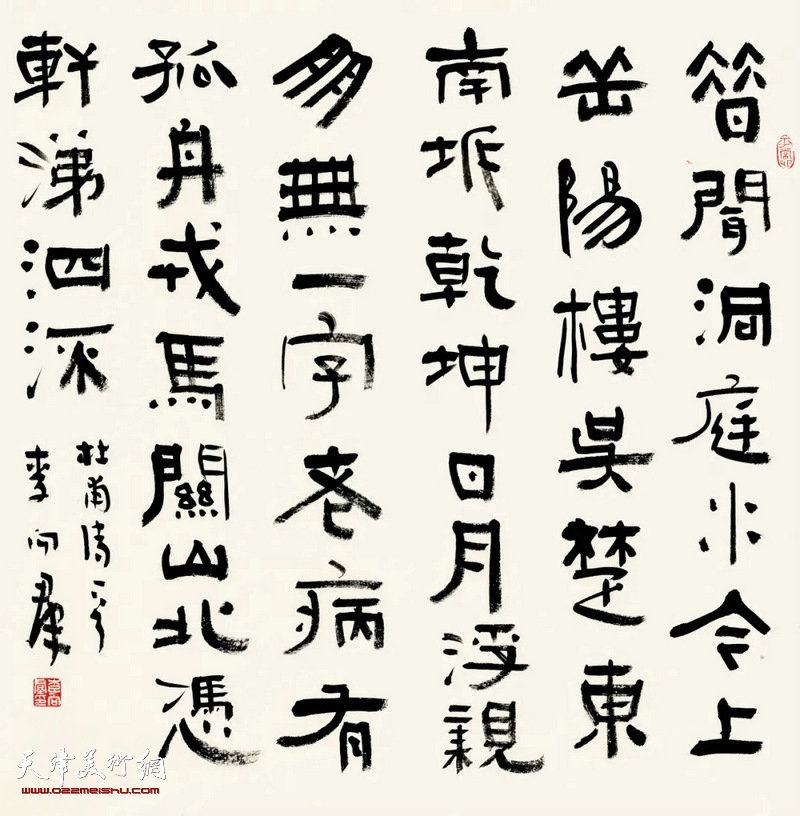 昔聞洞庭水今上
岳陽樓吳楚東
南坼乾坤日月浮親
朋無一字老病有
孤舟戎馬關山北憑
軒涕泗流
杜甫詩一首
李向群
天津美術網
www.022meishu.com